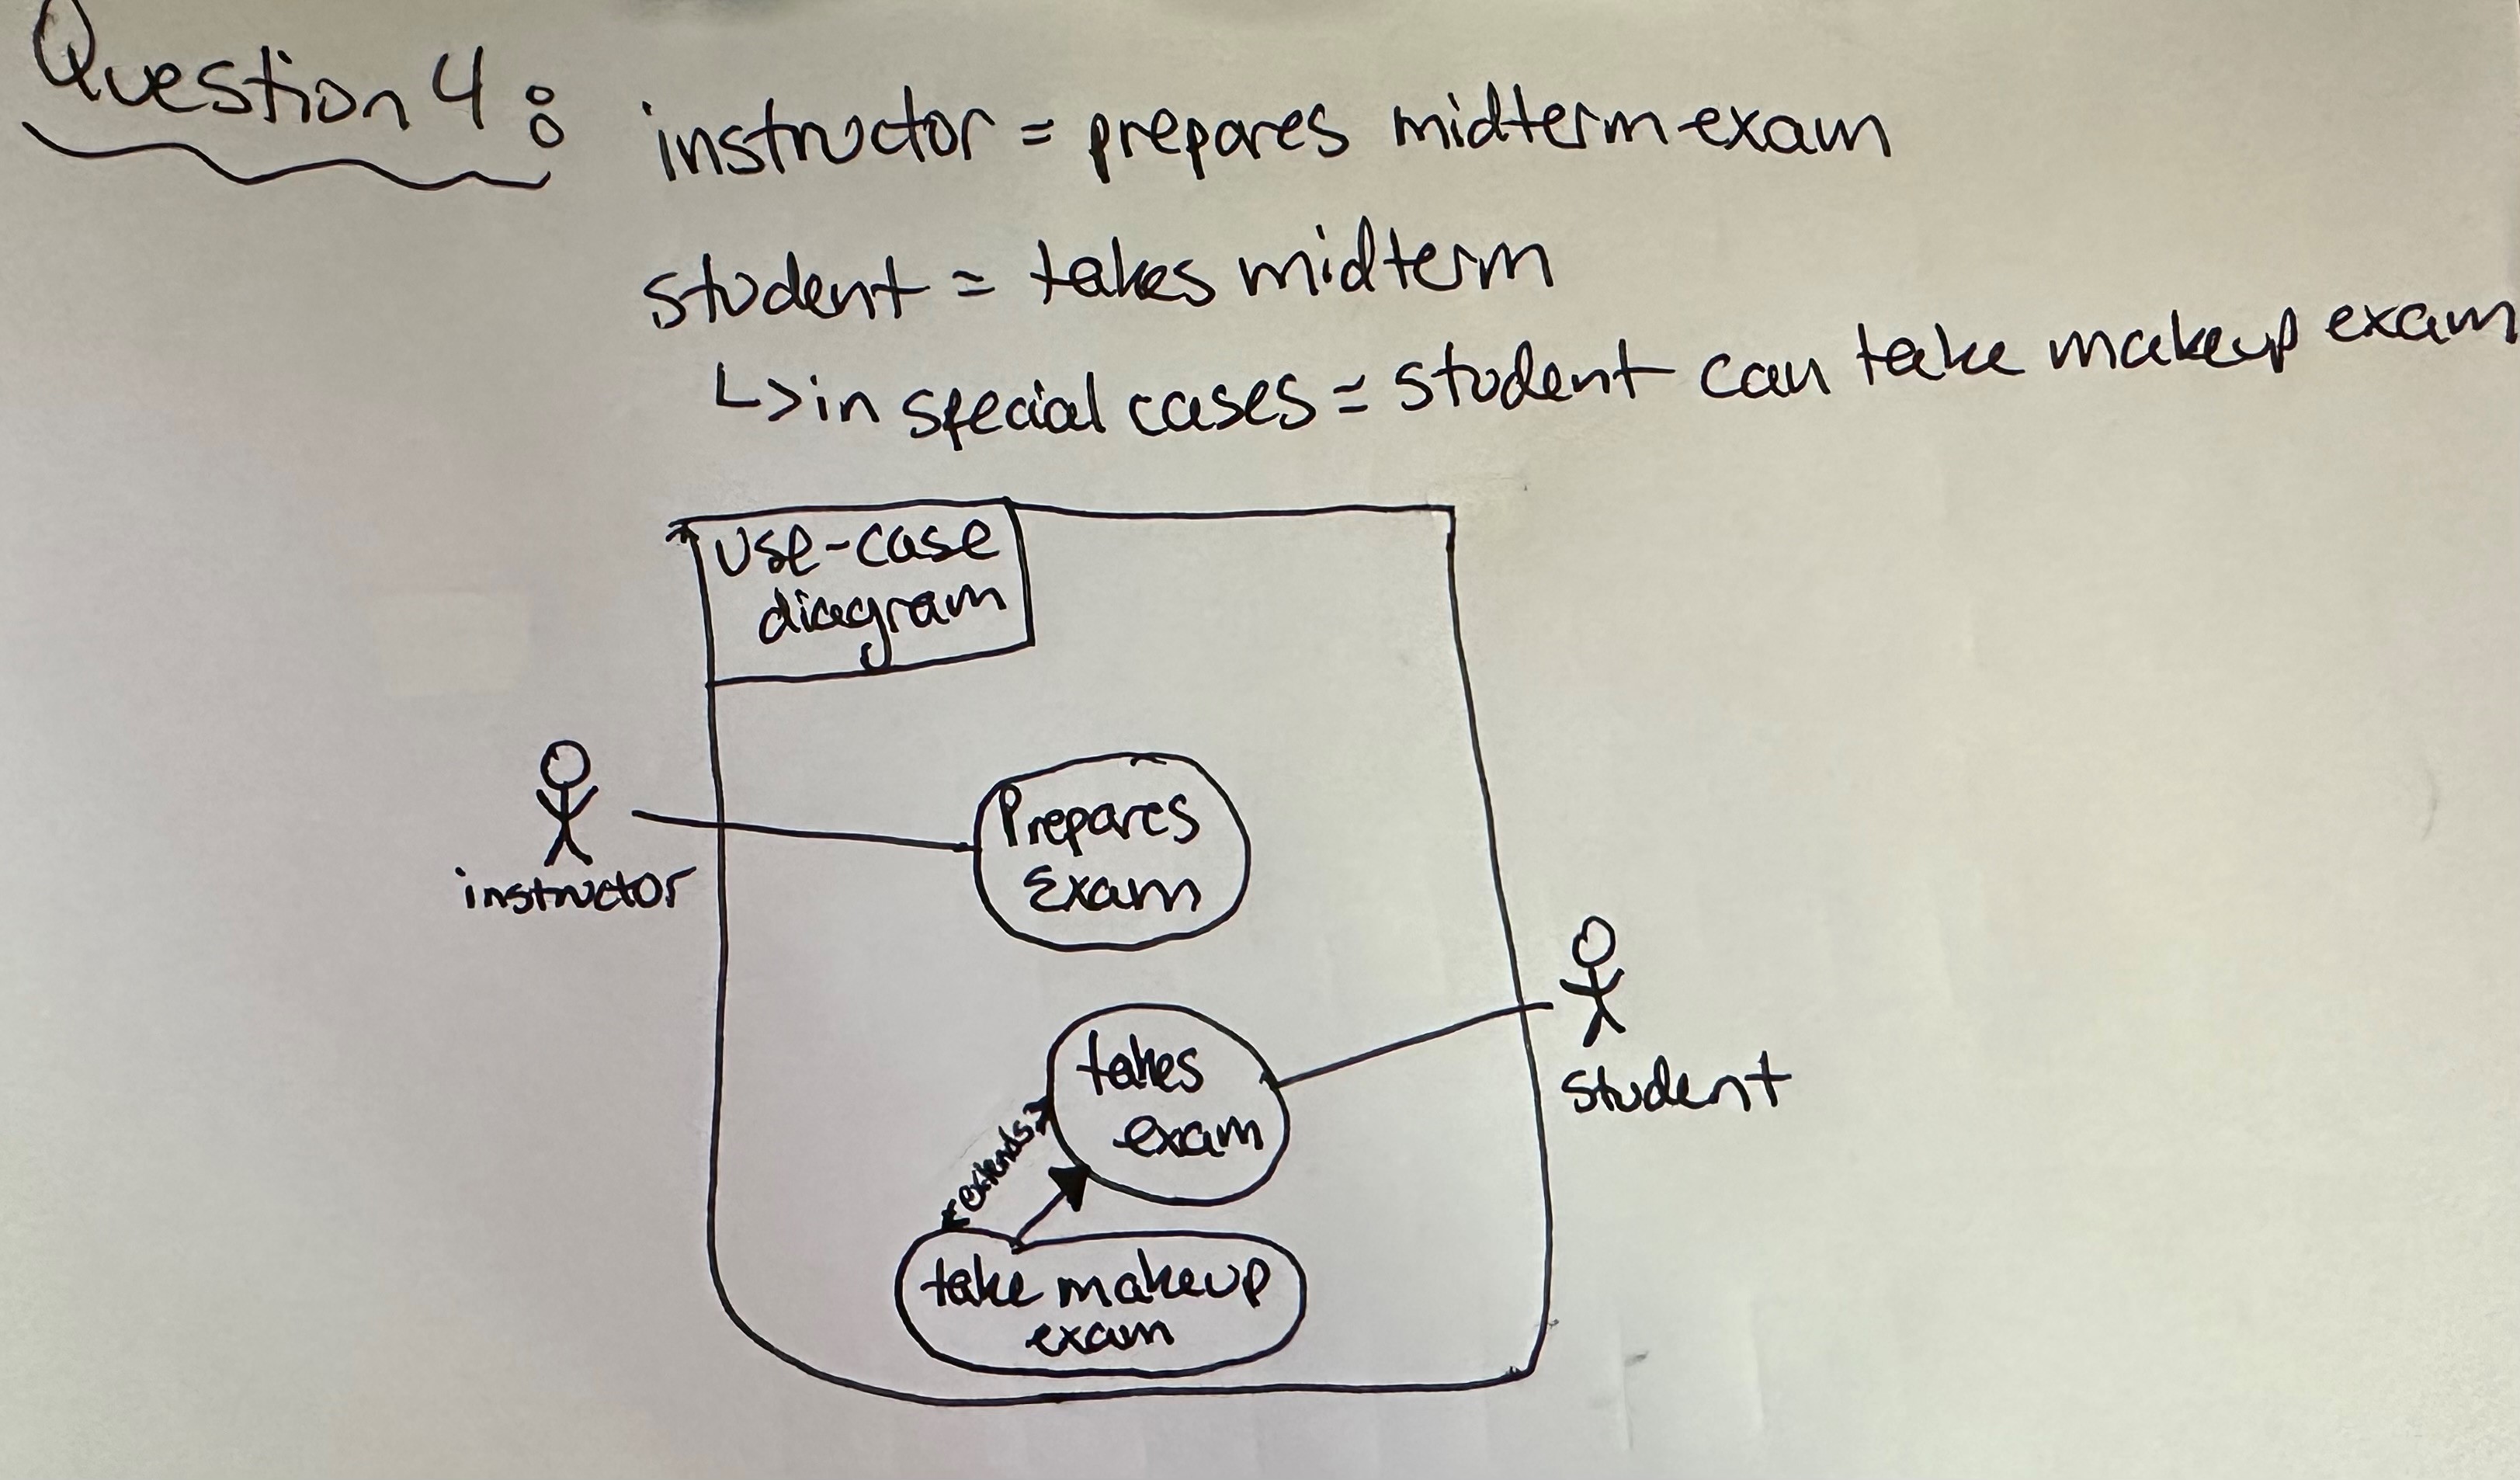 Question 4:
instructor = prepares midterm exam
student = takes midterm
↳ in special cases = student can take makeup exam
use-case
diagram
Prepares
Exam
instructor
takes
exam
student
<<extends>>
take makeup
exam